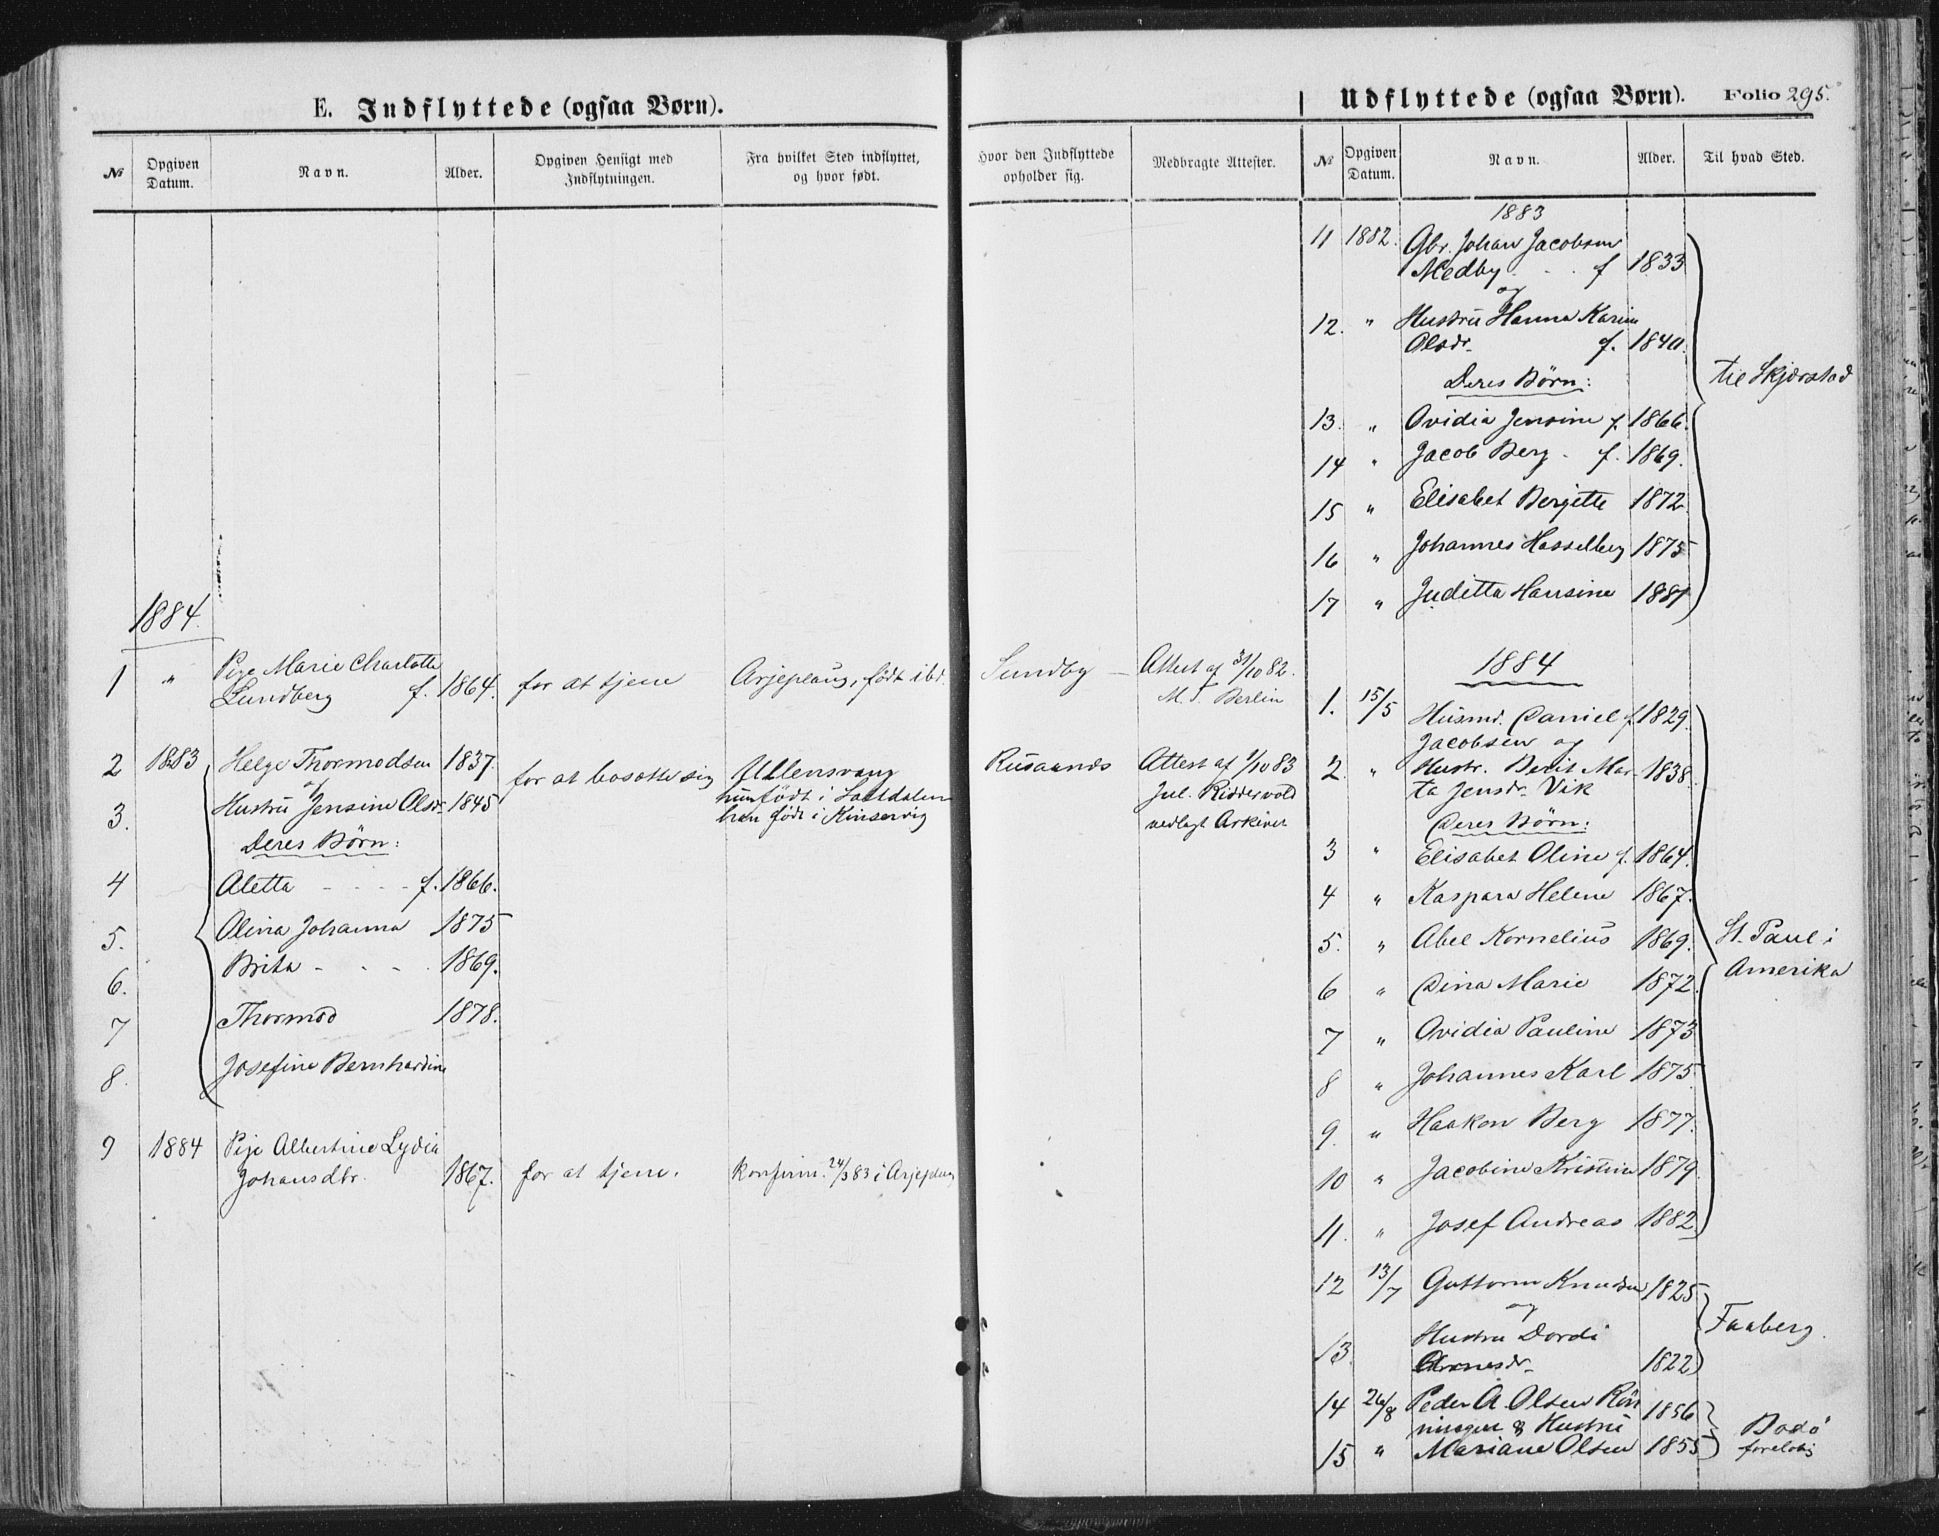 E. Indflyttede (ogsaa Børn).
№ Opgiven Datum. Navn. Alder. Opgiven Hensigt med Indflytningen. Fra hvilket Sted indflyttet, og hvor født. Hvor den Indflyttede opholder sig. Medbragte Attester.
1884.
1 " Pige Marie Charlotte
Lundberg f. 1864. for at tjene Arjeplaug, født ibd. Sundby — Attest af 31/10 82.
M. T. Berlin
2 1883 Helge Thormodsen 1837. for at bosætte sig Ullensvang Rusaanæs Attest af 1/10 83
og
3. Hustru Jensine Olsdr 1845 hun født i Saltdalen Jul. Riddervold
han født i Kinservig vedlagt Arkivet
Deres Børn:
4 Aletta - - - - f. 1866.
5. Olina Johanna 1875
6. Brita - - - 1869.
7 Thormod 1878.
8. Josefine Bernhardine
9 1884 Pige Albertine Lydia
Johansdtr. 1867. for at tjene. Konfirm. 24/3 83 i Arjeplaug
Udflyttede (ogsaa Børn). Folio 295.
№ Opgiven Datum. Navn. Alder. Til hvad Sted.
1883
11 1882. Gbr. Johan Jacobsen
Medby - - f 1833
og
12. " Hustru Hanna Karine
Olsdr. f. 1840.
Deres Børn: til Skjerstad
13. " Ovidia Jensine f. 1866.
14 " Jacob Berg - f. 1869.
15 " Elisabet Bergitte 1872
16 " Johannes Hasselberg 1875
17 " Juditta Hansine 1881
1884
1. 15/5 Husmd. Daniel f. 1829.
Jacobsen og
2. " Hustr. Berit Mar- 1838.
ta Jensdr. Vik
Deres Børn:
3 " Elisabet Oline f. 1864.
4 " Kaspara Helene 1867.
5. " Abel Kornelius 1869. St. Paul i
6 " Dina Marie 1872. Amerika
7 " Ovidia Pauline 1873
8 " Johannes Karl 1875.
9. " Haakon Berg 1877.
10 " Jacobine Kristine 1879.
11. " Josef Andreas 1882
12 13/7 Guttorm Knudsen 1825
og Faaberg.
13. Hustru Dordi
Arnesdr. 1822
14 26/8 Peder A. Olsen Røn 1856
ningen & Hustru Bodø
15 " Mariane Olsen 1855 foreløbig